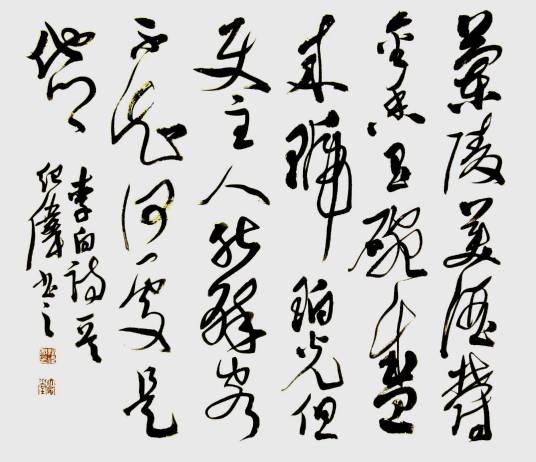 蘭陵美酒鬱
金香玉碗盛
来琥珀光但
使主人能醉客
不知何處是
他鄉
李白詩一首
紀偉書之